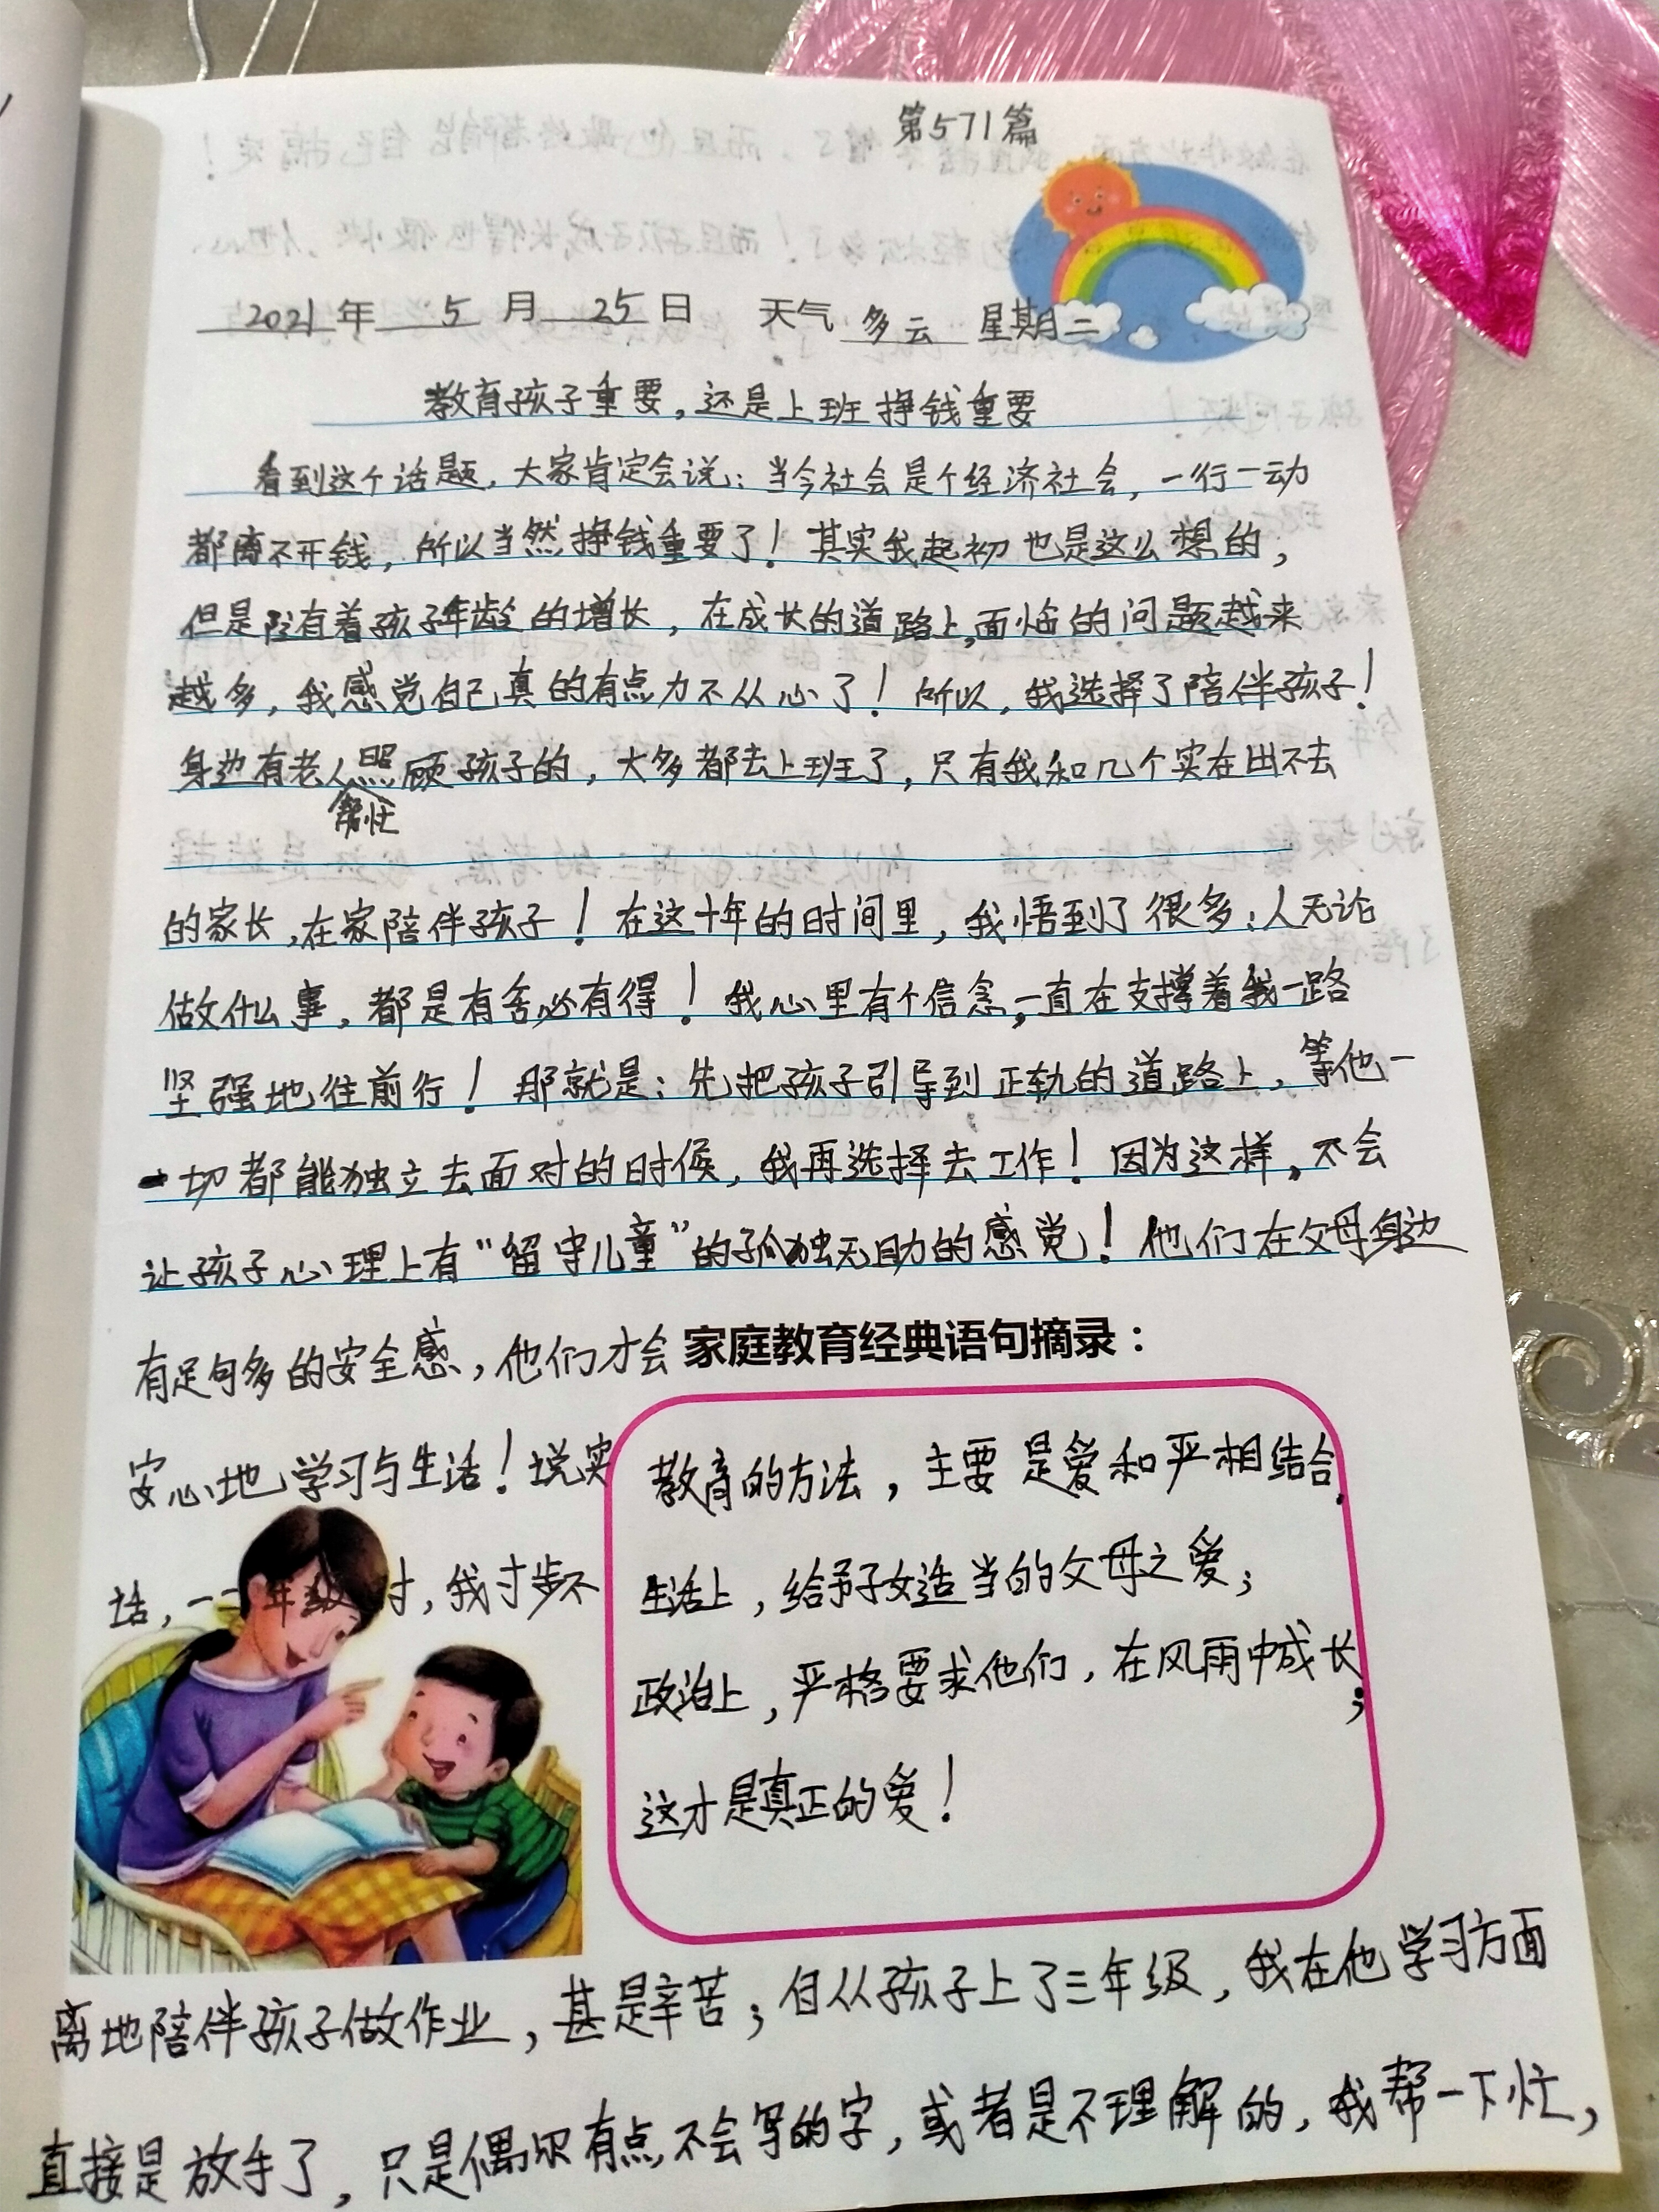 第571篇
2021年 5 月 25 日 天气 多云 星期二
教育孩子重要，还是上班挣钱重要
看到这个话题，大家肯定会说：当今社会是个经济社会，一行一动
都离不开钱，所以当然挣钱重要了！其实我起初也是这么想的，
但是随着孩子年龄的增长，在成长的道路上，面临的问题越来
越多，我感觉自己真的有点力不从心了！所以，我选择了陪伴孩子！
身边有老人帮忙照顾孩子的，大多都去上班了，只有我和几个实在出不去
的家长，在家陪伴孩子！在这十年的时间里，我悟到了很多：人无论
做什么事，都是有舍必有得！我心里有个信念，一直在支撑着我一路
坚强地往前行！那就是：先把孩子引导到正轨的道路上，等他一
一切都能独立去面对的时候，我再选择去工作！因为这样，不会
让孩子心理上有“留守儿童”的孤独无助的感觉！他们在父母身边
有足够多的安全感，他们才会
安心地学习与生活！说实
话，一二年级时，我寸步不
家庭教育经典语句摘录：
教育的方法，主要是爱和严相结合，
生活上，给予子女适当的父母之爱；
政治上，严格要求他们，在风雨中成长；
这才是真正的爱！
离地陪伴孩子做作业，甚是辛苦；自从孩子上了三年级，我在他学习方面
直接是放手了，只是偶尔有点不会写的字，或者是不理解的，我帮一下忙，